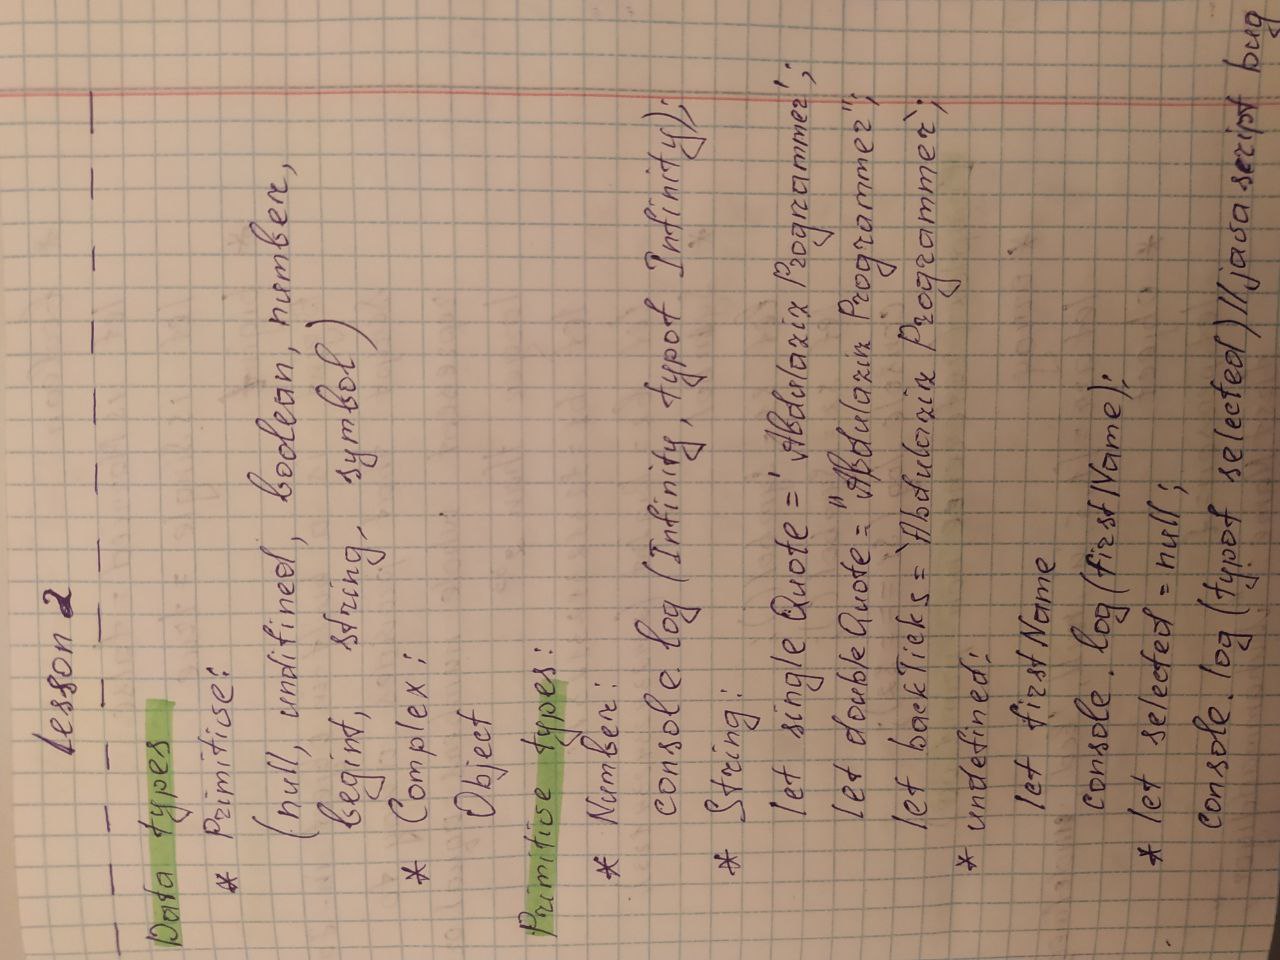 Lesson 2
Data types
* Primitive:
(null, undifined, boolean, number,
begint, string, symbol)
* Complex:
Object
Primitive types:
* Number:
console.log(Infinity, typof Infinity);
* String:
let singleQuote = 'Abdulaziz Programmer';
let doubleQuote = "Abdulaziz Programmer";
let backTicks = `Abdulaziz Programmer`;
* undefined:
let firstName
console.log(firstName);
* let selected = null;
console.log(typof selected)//javascript bug